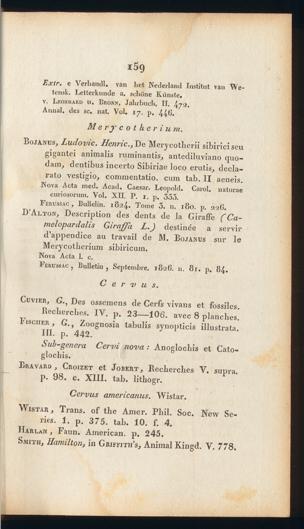 159
Extr. e Verhandl. van het Nederland Institut van We-
tensk. Letterkunde a. schöne Künste.
v. LEONHARD u. BRONN, Jahrbuch, II. 472.
Annal. des sc. nat. Vol. 17. p. 446.
Merycotherium.
BOJANUS, Ludovic. Henric., De Merycotherii sibirici seu
gigantei animalis ruminantis, antediluviano quo-
dam, dentibus incerto Sibiriae loco erutis, decla-
rato vestigio, commentatio. cum tab. II aeneis.
Nova Acta med. Acad. Caesar. Leopold. Carol. naturae
curiosorum. Vol. XII. P. 1. p. 335.
FERUSSAC, Bulletin. 1824. Tome 3. n. 180. p. 226.
D'ALTON, Description des dents de la Giraffe (Ca-
melopardalis Giraffa L.) destinée a servir
d'appendice au travail de M. BOJANUS sur le
Merycotherium sibiricum.
Nova Acta l. c.
FERUSSAC, Bulletin, Septembre. 1826. n. 81. p. 84.
Cervus.
CUVIER, G., Des ossemens de Cerfs vivans et fossiles.
Recherches. IV. p. 23—106. avec 8 planches.
FISCHER, G., Zoognosia tabulis synopticis illustrata.
III. p. 442.
Sub-genera Cervi nova: Anoglochis et Cato-
glochis.
BRAVARD, CROIZET et JOBERT, Recherches V. supra.
p. 98. c. XIII. tab. lithogr.
Cervus americanus. Wistar.
WISTAR, Trans. of the Amer. Phil. Soc. New Se-
ries. 1. p. 375. tab. 10. f. 4.
HARLAN, Faun. American. p. 245.
SMITH, Hamilton, in GRIFFITH's, Animal Kingd. V. 778.